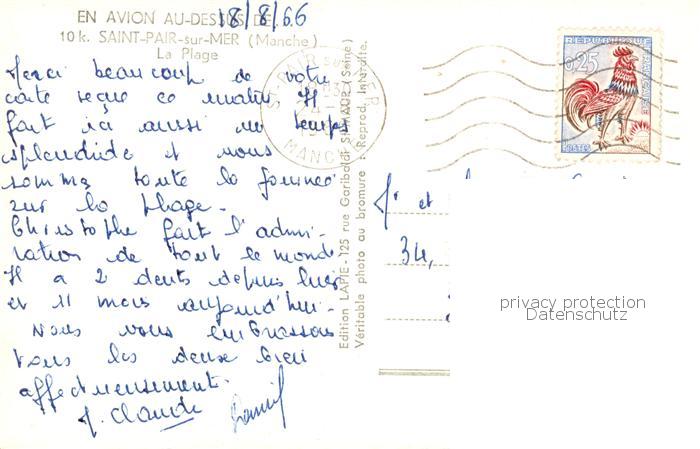 18/8/66
EN AVION AU-DESSUS DE...
10 k. SAINT-PAIR-sur-MER (Manche)
La Plage
Merci beaucoup de votre
carte reçue ce matin. Il
fait ici aussi un temps
splendide et nous
sommes toute la journée
sur la plage.
Christophe fait l'admi-
ration de tout le monde
Il a 2 dents depuis hier
et 11 mois aujourd'hui.
Nous vous embrassons
tous les deux bien
affectueusement.
J. Claude
ST PAIR sur MER
MANCHE
Edition LAPIE - 125 rue Garibaldi St-MAUR (Seine)
Véritable photo au bromure - Reprod. Interdite.
REPUBLIQUE
FRANÇAISE
0,25
POSTES
Mr et
34,
privacy protection
Datenschutz